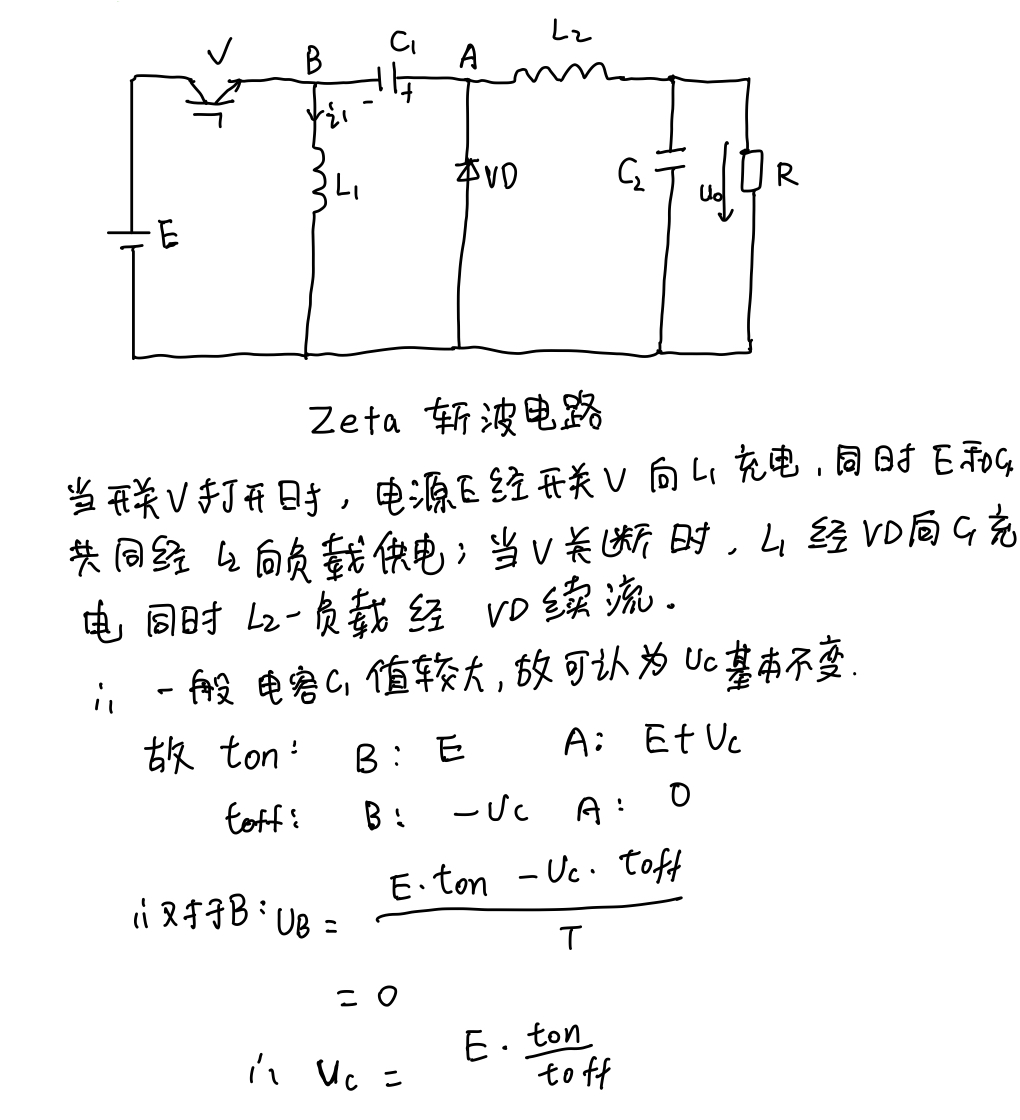 V B C₁ A L₂
- +
i₁
L₁ VD C₂ u₀ R
E
Zeta 斩波电路
当开关V打开时，电源E经开关V向L₁充电，同时E和C₁
共同经L₂向负载供电；当V关断时，L₁经VD向C₁充
电 同时L₂-负载经 VD续流.
∵ 一般电容C₁值较大，故可认为Uc基本不变.
故 ton: B: E A: E+Uc
toff: B: -Uc A: 0
∴对于B: UB = (E·ton - Uc·toff) / T
= 0
∴ Uc = E·ton/toff